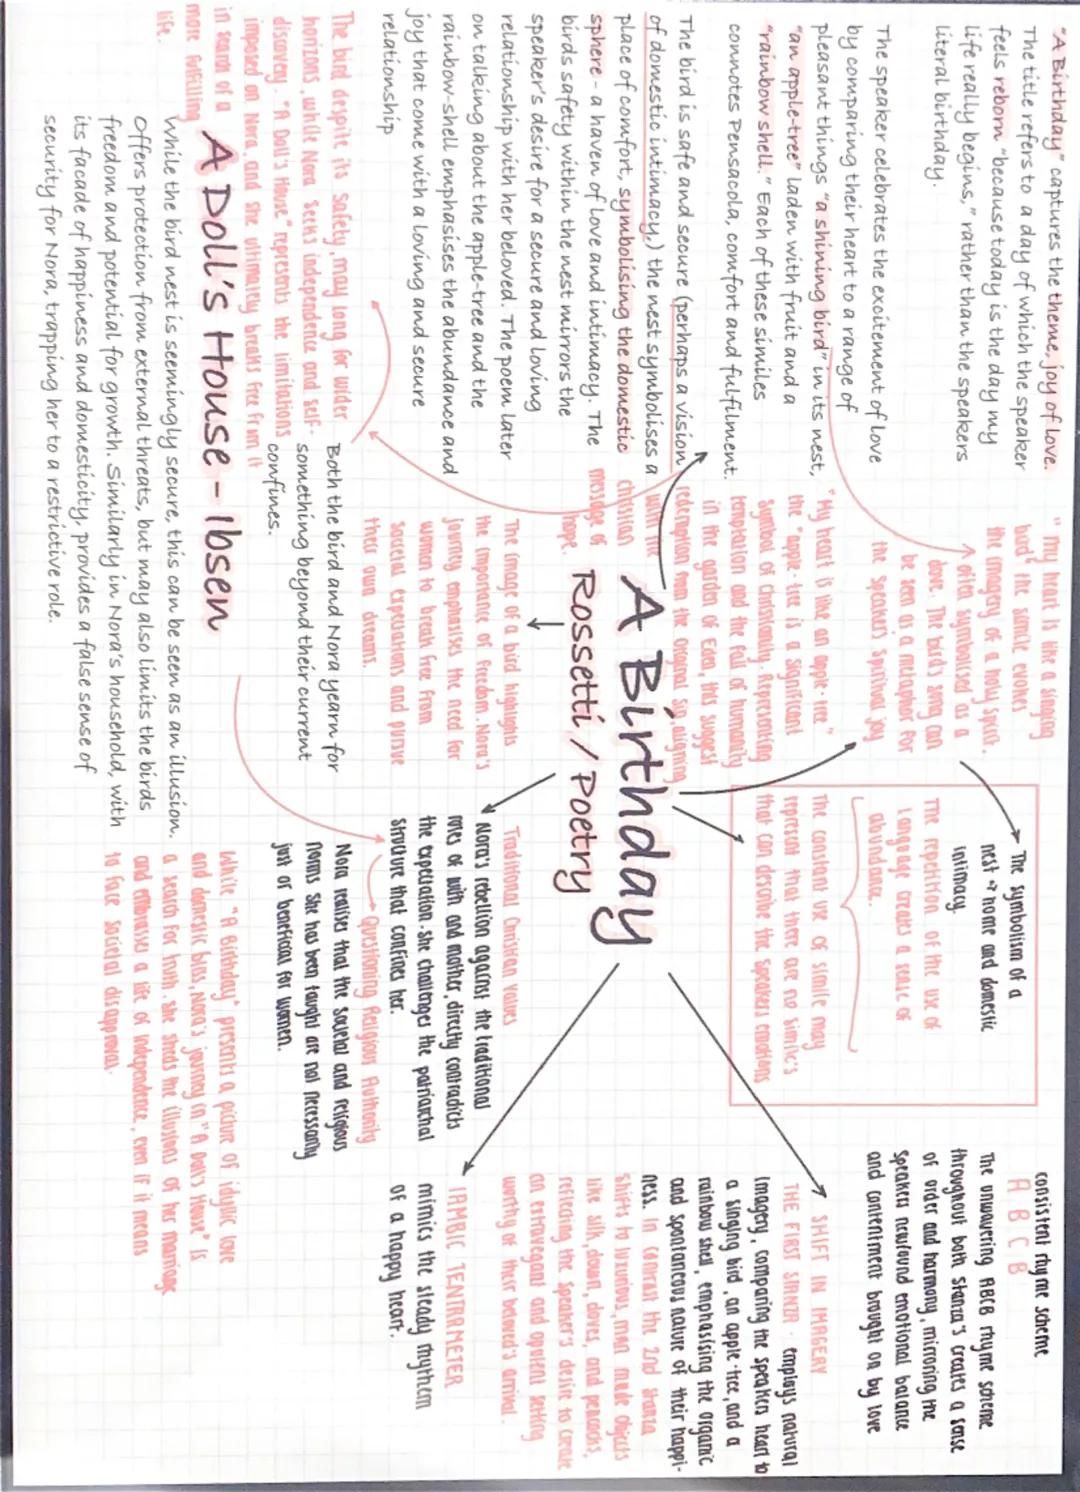 "A Birthday" captures the theme, joy of love.
The title refers to a day of which the speaker
feels reborn "because today is the day my
life really begins," rather than the speakers
literal birthday.
The speaker celebrates the excitement of love
by comparing their heart to a range of
pleasant things "a shining bird" in its nest,
"an apple-tree" laden with fruit and a
"rainbow shell." Each of these similes
connotes Pensacola, comfort and fulfilment.
The bird is safe and secure (perhaps a vision
of domestic intimacy,) the nest symbolises a
place of comfort, symbolising the domestic
sphere - a haven of love and intimacy. The
birds safety within the nest mirrors the
speaker's desire for a secure and loving
relationship with her beloved. The poem later
on talking about the apple-tree and the
rainbow-shell emphasises the abundance and
joy that come with a loving and secure
relationship
The bird despite its safety, may long for wider
horizons, while Nora seeks independence and self-
discovery. "A Doll's House" represents the limitations
imposed on Nora, and she ultimately breaks free from it
in search of a
more fulfilling
life.
"my heart is like a singing
bird" the simile evokes
the imagery of a holy spirit.
often symbolised as a
dove. The bird's song can
be seen as a metaphor for
the speakers spiritual joy
"My heart is like an apple-tree"
the "apple-tree is a significant
symbol of christianity. Representing
temptation and the fall of humanity
in the garden of Eden, this suggest
redemption from the original sin, aligning
with the
christian
message of
hope.
A Birthday
Rossetti / Poetry
The image of a bird highlights
the importance of freedom. Nora's
journey emphasises the need for
women to break free from
societal expectations and pursue
their own dreams.
Both the bird and Nora yearn for
something beyond their current
confines.
A Doll's House - Ibsen
While the bird nest is seemingly secure, this can be seen as an illusion.
Offers protection from external threats, but may also limits the birds
freedom and potential for growth. Similarly in Nora's household, with
its facade of happiness and domesticity, provides a false sense of
security for Nora, trapping her to a restrictive role.
The symbolism of a
nest → home and domestic
intimacy.
The repetition of the use of
language creates a sense of
abundance.
The constant use of simile may
represent that there are no simile's
that can describe the speakers emotions
Traditional Christian values
Nora's rebellion against the traditional
roles of with and mother, directly contradicts
the expectation. she challenges the patriarchal
structure that confines her.
Questioning Religious Authority
Nora realises that the societal and religious
norms she has been taught are not necessarily
just or beneficial for women.
While "A Birthday" presents a picture of idyllic love
and domestic bliss, Nora's journey in "A Doll's House" is
a search for truth. she sheds the illusions of her marriage
and embraces a life of independence, even if it means
to face societal disapproval.
consistent rhyme scheme
A B C B
The unwavering ABCB rhyme scheme
throughout both stanza's creates a sense
of order and harmony, mirroring the
speakers newfound emotional balance
and contentment brought on by love
SHIFT IN IMAGERY
THE FIRST STANZA · employs natural
imagery, comparing the speakers heart to
a singing bird, an apple-tree, and a
rainbow shell, emphasising the organic
and spontaneous nature of their happi-
ness. In contrast the 2nd stanza
shifts to luxurious, man made objects
like silk, down, doves, and peacocks,
reflecting the speaker's desire to create
an extravegant and opulent setting
worthy of their beloved's arrival.
IAMBIC TENTRAMETER
mimics the steady rhythem
of a happy heart.